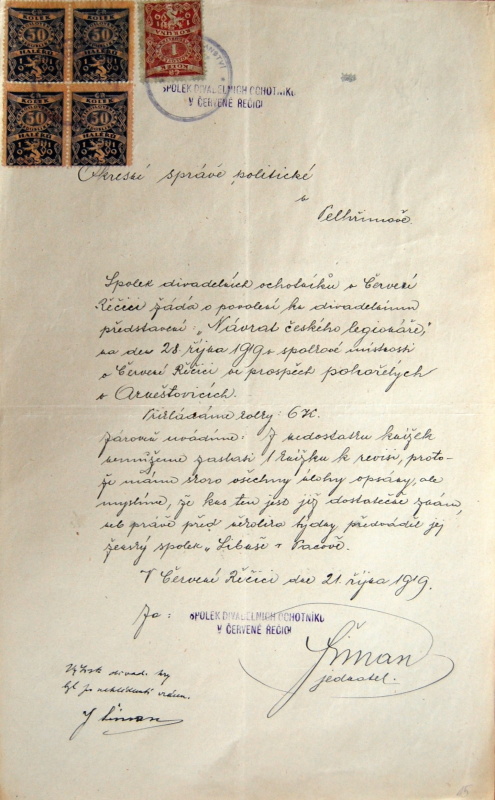 KOLEK KOLEK
50 50
HALÉŘŮ HALÉŘŮ
KOLEK KOLEK
50 50
HALÉŘŮ HALÉŘŮ
1
SPOLEK DIVADELNÍCH OCHOTNÍKŮ
V ČERVENÉ ŘEČICI
Okresní správě politické
v
Pelhřimově.
Spolek divadelních ochotníků v Červené
Řečici žádá o povolení ku divadelnímu
představení: „Návrat českého legionáře,"
na den 28. října 1919 v spolkové místnosti
v Červené Řečici ve prospěch pohořelých
v Arneštovicích.
Přikládáme kolky: 6 K.
Zároveň uvádíme: Z nedostatku knížek
nemůžeme zaslati 1 knížku k revisi, proto-
že máme skoro všechny úlohy opsány, ale
myslíme, že kus ten jest již dostatečně znám,
neb právě před několika týdny předváděl jej
ženský spolek „Libuše" v Pacově.
V Červené Řečici dne 21. října 1919.
Za: SPOLEK DIVADELNÍCH OCHOTNÍKŮ
V ČERVENÉ ŘEČICI
Šiman
jednatel.
Výtisk divad. hry
byl po
J Šiman